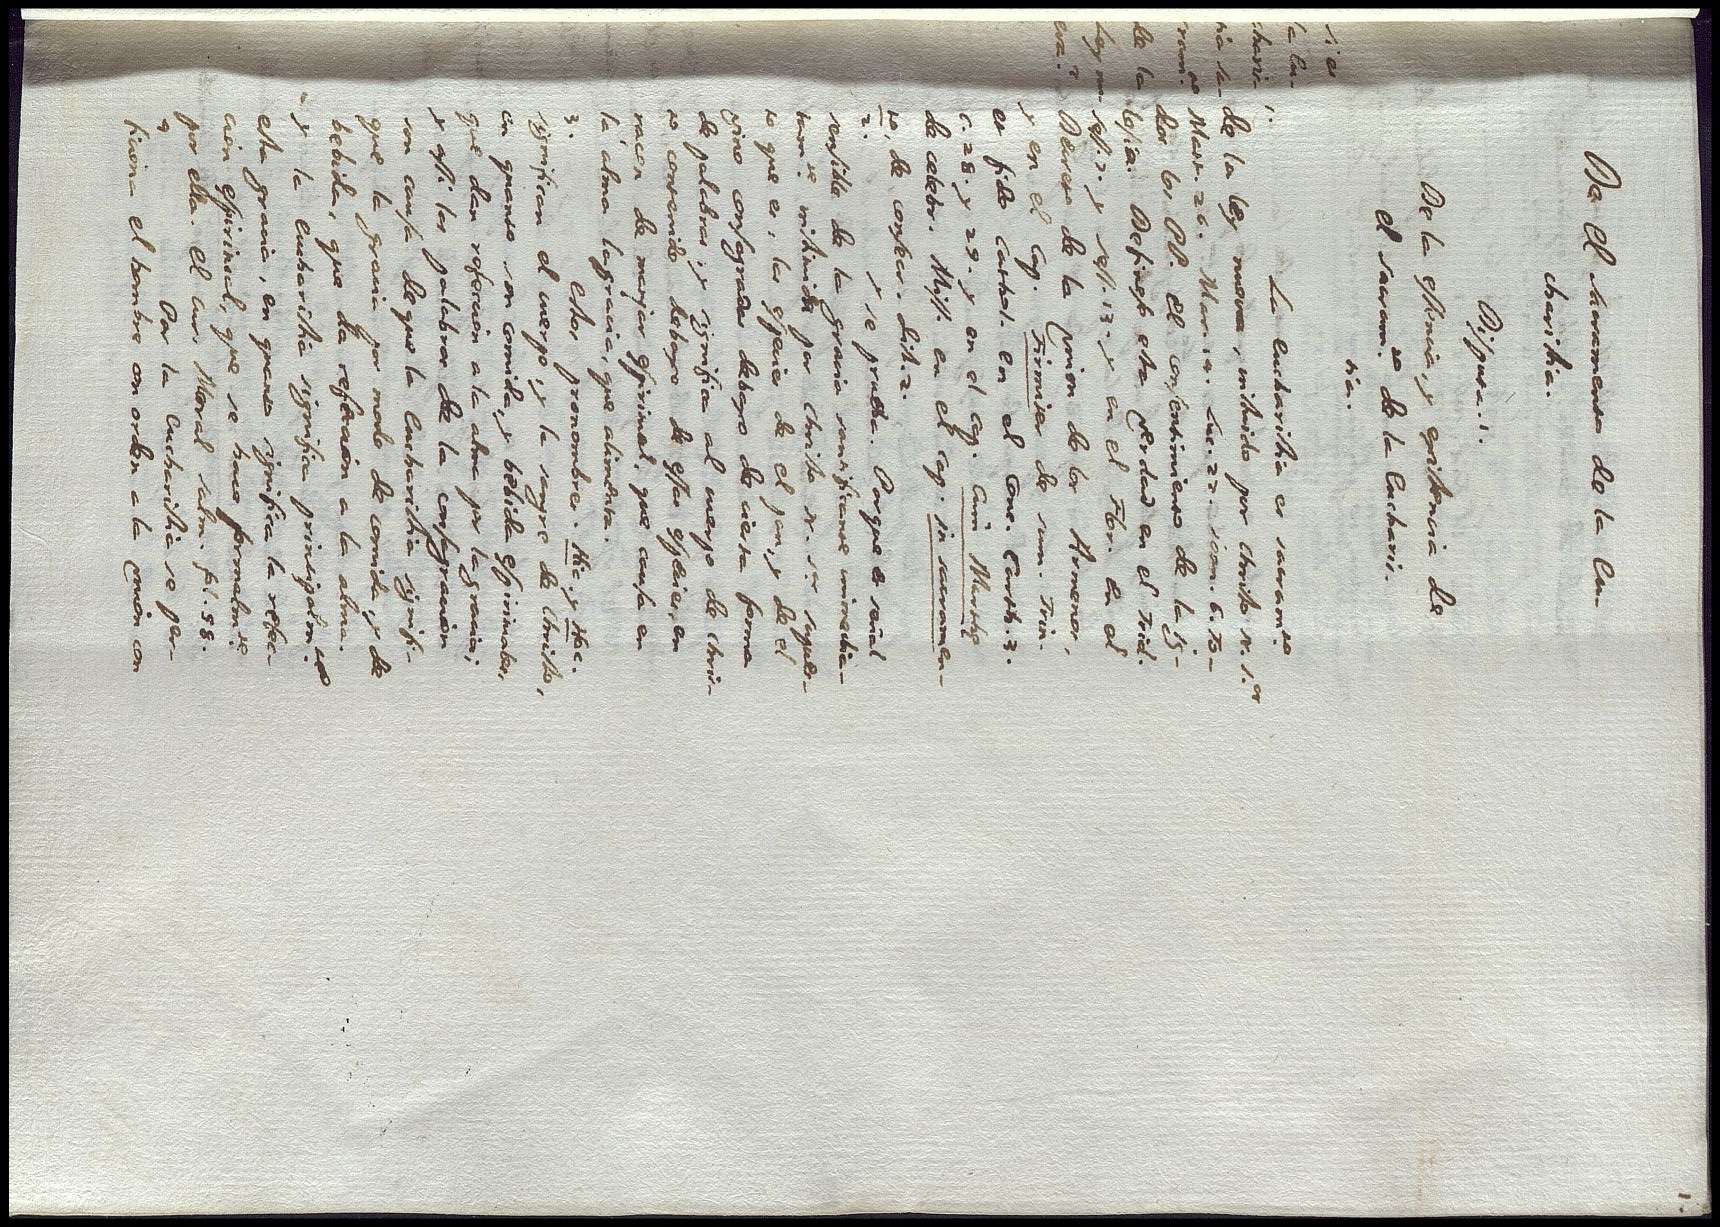 1.
De el Sacramento de la Eu-
charistia.
Disputa. 1.
De la essencia, y existencia de
el sacram.to de la Eucharis-
tia.
si es
la Eu-
charis-
tia sa-
cram.to
de la
ley nu-
eva?
1. La eucharistia es sacram.to
de la ley nueva, instituido por christo n. s.or
Matt. 26. Marc. 14. Luc. 22. Joan. 6. To-
dos los PP. el consentimiento de la Ig-
lesia. Definese esta verdad en el Trid.
sess. 7. y sess. 13. y en el Flor. en el
Decreto de la union de los Armenos,
y en el cap. Firmiter de sum. Trin.
et fide cathol. en el Conc. Carth. 3.
c. 28. y 29. y en el cap. Cum Marthe
de celebr. Miss. en el cap. in sacramen-
to, de consecr. dist. 2.
2. y se prueba. Porque es señal
sensible de la gracia santificante immedia-
tam.te instituida por christo n. s.r supues-
to que es, las especies de el pan, y de el
vino consagradas debaxo de cierta forma
de palabras, y significa al cuerpo de chris-
to contenido debaxo de essas especies, en
razon de manjar espiritual, que causa en
la alma la gracia, que alimenta.
3. estos pronombres. Hic, y Hoc.
significan el cuerpo, y la sangre de christo,
en quanto son comida, y bebida espirituales,
que dan refeccion a la alma por la gracia;
y assi las palabras de la consagracion
son causa de que la Eucharistia signifi-
que la gracia por modo de comida, y de
bebida, que da refeccion a la alma.
y la Eucharistia significa principalm.te
esta gracia, en quanto significa la refec-
cion espiritual, que se hace formalm.te
por ella. el cur. Moral salm. fol. 58.
4 Por la Eucharistia se per-
ficiona el hombre con orden a la union con